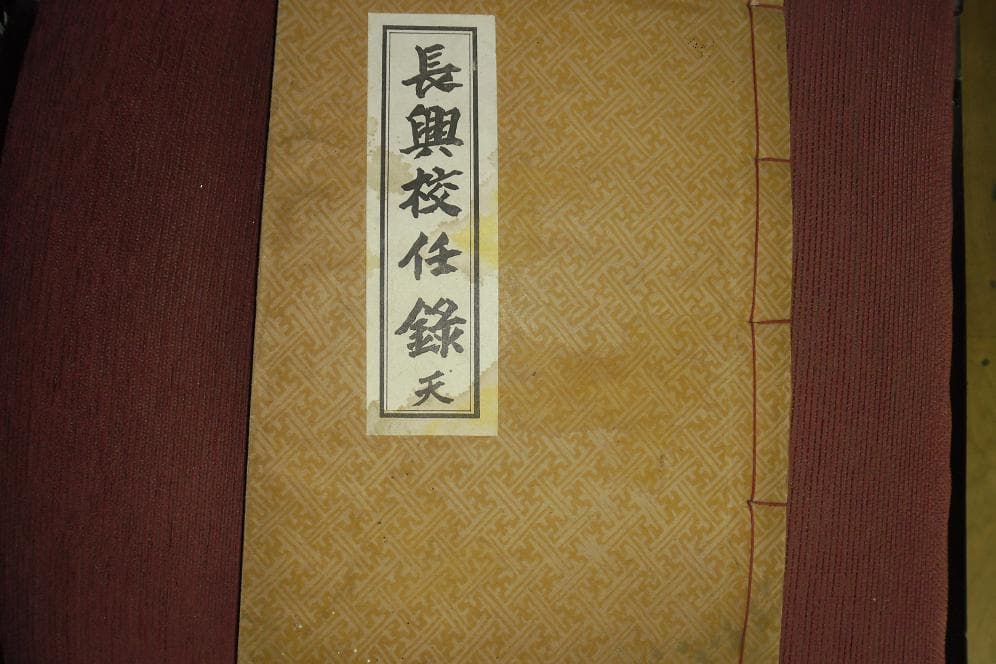 長興校任錄 天